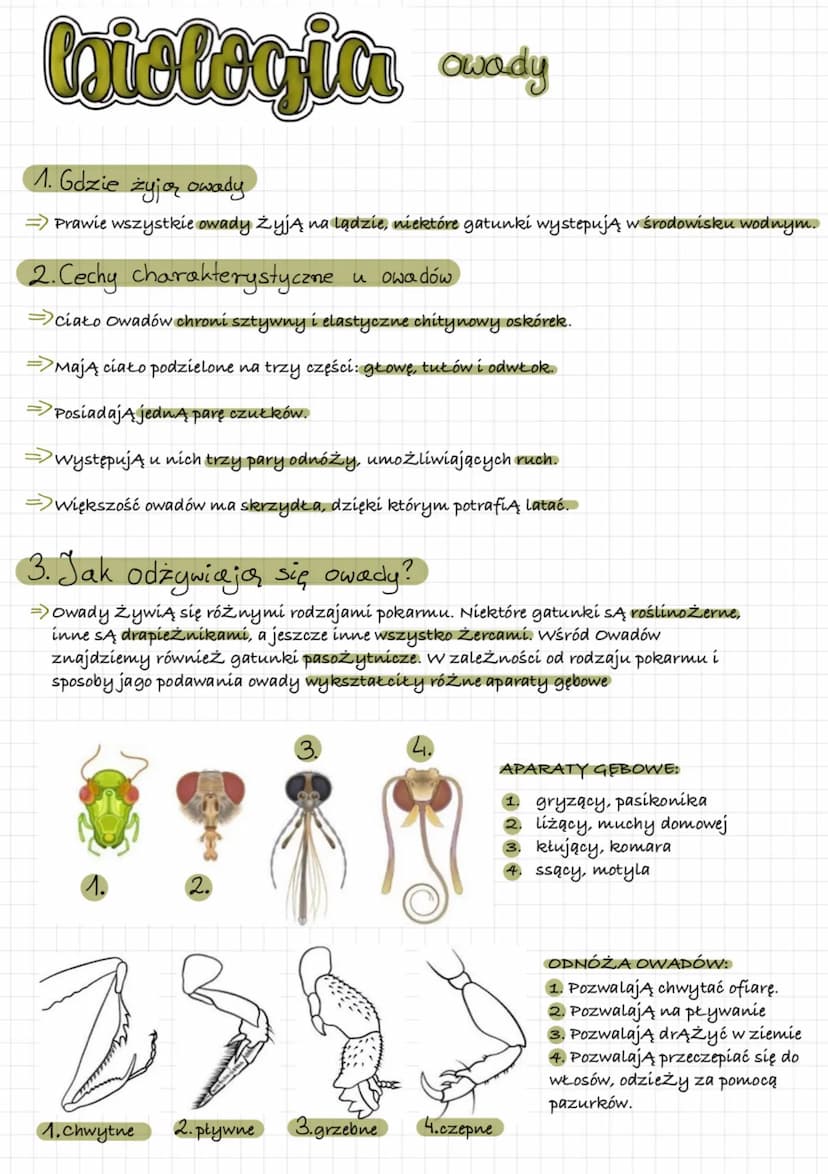 biologia
owady
1. Gdzie żyją owady
=> Prawie wszystkie owady ŻyjĄ na lądzie, niektóre gatunki występujĄ w środowisku wodnym.
2. Cechy charakterystyczne u owadów
=> Ciało Owadów chroni sztywny i elastyczne chitynowy oskórek.
=> MajĄ ciało podzielone na trzy części: głowę, tułów i odwłok.
=> PosiadajĄ jednĄ parę czułków.
=> WystępujĄ u nich trzy pary odnóŻy, umoŻliwiających ruch.
=> Większość owadów ma skrzydła, dzięki którym potrafiĄ latać.
3. Jak odżywiają się owady?
=> Owady ŻywiĄ się róŻnymi rodzajami pokarmu. Niektóre gatunki sĄ roślinoŻerne,
inne sĄ drapieŻnikami, a jeszcze inne wszystko Żercami. Wśród Owadów
znajdziemy równieŻ gatunki pasoŻytnicze. W zaleŻności od rodzaju pokarmu i
sposoby jago podawania owady wykształciły róŻne aparaty gębowe
3.
4.
1.
2.
APARATY GĘBOWE:
1. gryzący, pasikonika
2. liżący, muchy domowej
3. kłujący, komara
4. ssący, motyla
1. Chwytne
2. pływne
3. grzebne
4. czepne
ODNÓŻA OWADÓW:
1. PozwalajĄ chwytać ofiarę.
2. PozwalajĄ na pływanie
3. PozwalajĄ drĄŻyć w ziemie
4. PozwalajĄ przeczepiać się do
włosów, odzieŻy za pomocą
pazurków.